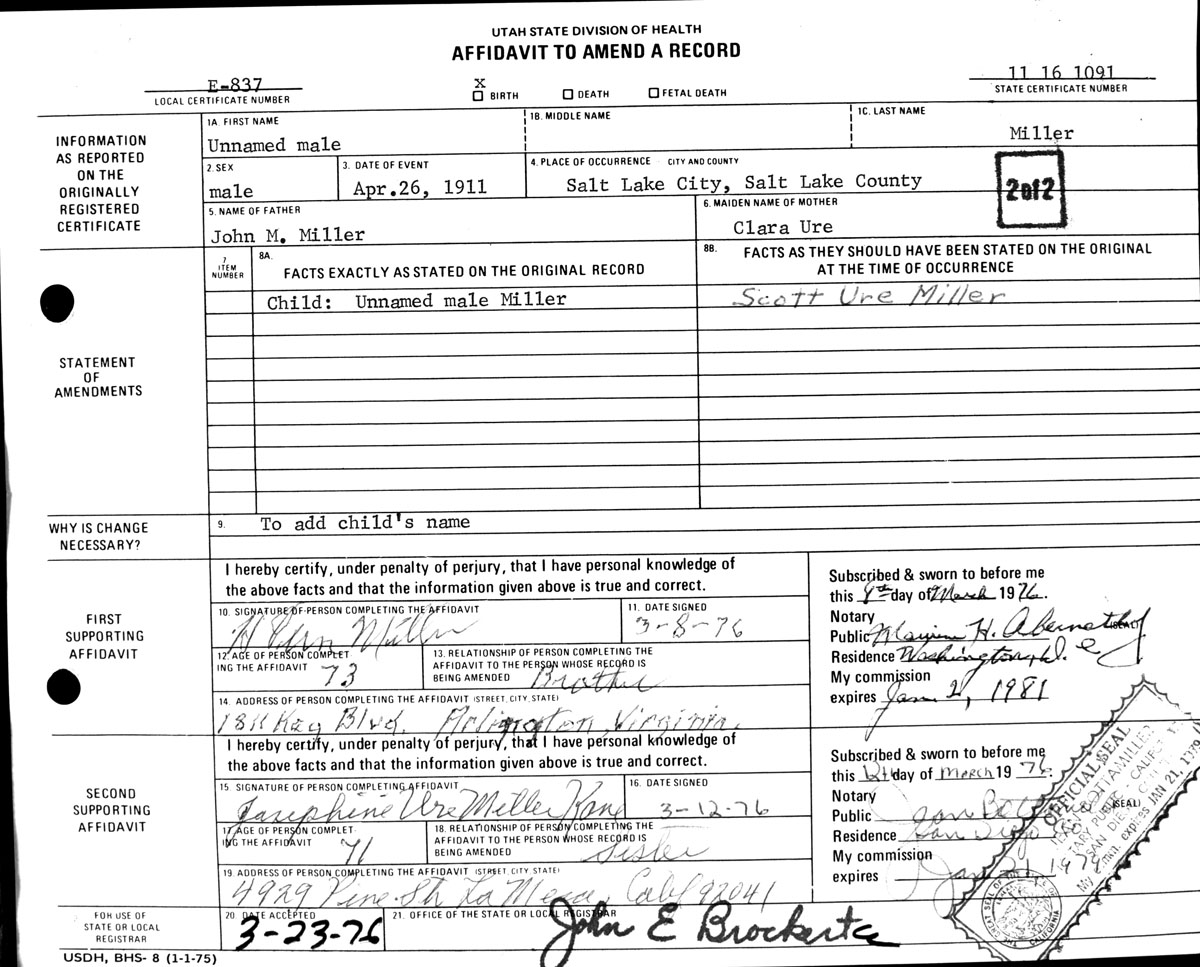 UTAH STATE DIVISION OF HEALTH
AFFIDAVIT TO AMEND A RECORD
E-837
LOCAL CERTIFICATE NUMBER
X
BIRTH DEATH FETAL DEATH
11 16 1091
STATE CERTIFICATE NUMBER
INFORMATION AS REPORTED ON THE ORIGINALLY REGISTERED CERTIFICATE
1A. FIRST NAME
Unnamed male
1B. MIDDLE NAME
1C. LAST NAME
Miller
2. SEX
male
3. DATE OF EVENT
Apr.26, 1911
4. PLACE OF OCCURRENCE - CITY AND COUNTY
Salt Lake City, Salt Lake County
2 of 2
5. NAME OF FATHER
John M. Miller
6. MAIDEN NAME OF MOTHER
Clara Ure
STATEMENT OF AMENDMENTS
7 ITEM NUMBER
8A. FACTS EXACTLY AS STATED ON THE ORIGINAL RECORD
8B. FACTS AS THEY SHOULD HAVE BEEN STATED ON THE ORIGINAL
AT THE TIME OF OCCURRENCE
Child: Unnamed male Miller
Scott Ure Miller
WHY IS CHANGE NECESSARY?
9. To add child's name
FIRST SUPPORTING AFFIDAVIT
I hereby certify, under penalty of perjury, that I have personal knowledge of
the above facts and that the information given above is true and correct.
10. SIGNATURE OF PERSON COMPLETING THE AFFIDAVIT
Miller
11. DATE SIGNED
3-8-76
12. AGE OF PERSON COMPLET
ING THE AFFIDAVIT 73
13. RELATIONSHIP OF PERSON COMPLETING THE
AFFIDAVIT TO THE PERSON WHOSE RECORD IS
BEING AMENDED Brother
14. ADDRESS OF PERSON COMPLETING THE AFFIDAVIT (STREET, CITY, STATE)
1811 Key Blvd. Arlington, Virginia.
Subscribed & sworn to before me
this 8th day of March 1976.
Notary
Public H. Abernathy (SEAL)
Residence Washington, D.C.
My commission
expires Jan 1981
SECOND SUPPORTING AFFIDAVIT
I hereby certify, under penalty of perjury, that I have personal knowledge of
the above facts and that the information given above is true and correct.
15. SIGNATURE OF PERSON COMPLETING THE AFFIDAVIT
Josephine Ure Miller
16. DATE SIGNED
3-12-76
17. AGE OF PERSON COMPLET
ING THE AFFIDAVIT 71
18. RELATIONSHIP OF PERSON COMPLETING THE
AFFIDAVIT TO THE PERSON WHOSE RECORD IS
BEING AMENDED Sister
19. ADDRESS OF PERSON COMPLETING THE AFFIDAVIT (STREET, CITY, STATE)
4929 Pine St. La Mesa, Calif 92041
Subscribed & sworn to before me
this 12th day of March 1976
Notary
Public (SEAL)
Residence San Diego
My commission
expires Jan 21 1979
OFFICIAL SEAL
FOR USE OF STATE OR LOCAL REGISTRAR
20. DATE ACCEPTED
3-23-76
21. OFFICE OF THE STATE OR LOCAL REGISTRAR
John E Brockert
USDH, BHS- 8 (1-1-75)